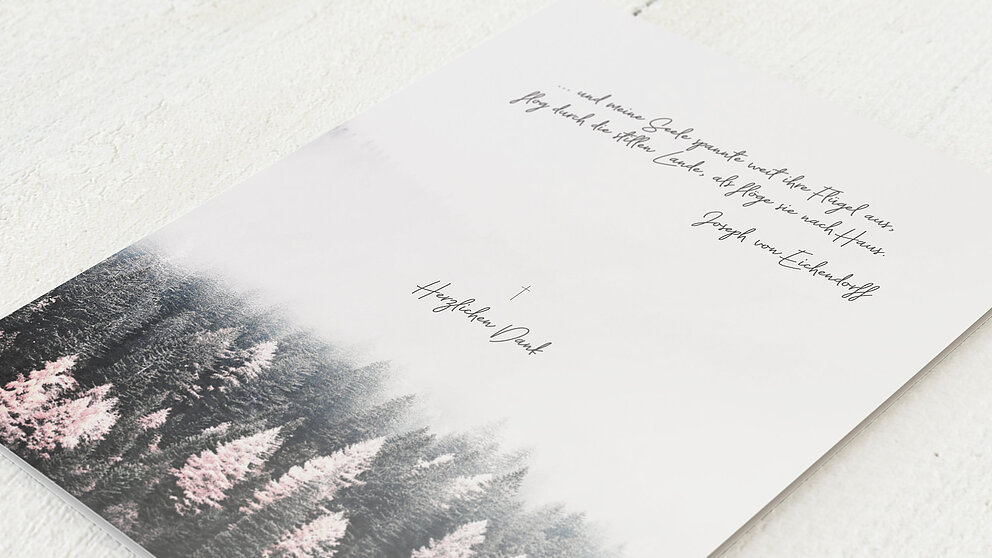 ... und meine Seele spannte weit ihre Flügel aus,
flog durch die stillen Lande, als flöge sie nach Haus.
Joseph von Eichendorff
Herzlichen Dank